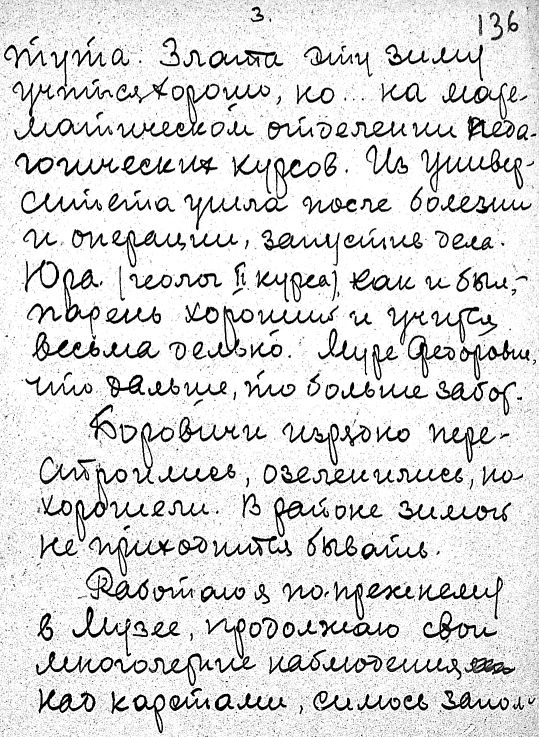 3.
136
тута. Злата эту зиму
учится хорошо, но... на мате-
матическом отделении педа-
гогических курсов. Из универ-
ситета ушла после болезни
и операции, запустив дела.
Юра (геолог II курса), как и был,-
парень хороший и учится
весьма дельно. Муре Федоровне,
что дальше, то больше забот.
Боровичи изрядно пере-
строились, озеленились, по-
хорошели. В районе зимой
не приходится бывать.
Работаю я по-прежнему
в Музее, продолжаю свои
многолетние наблюдения
над карстами, силюсь запол-